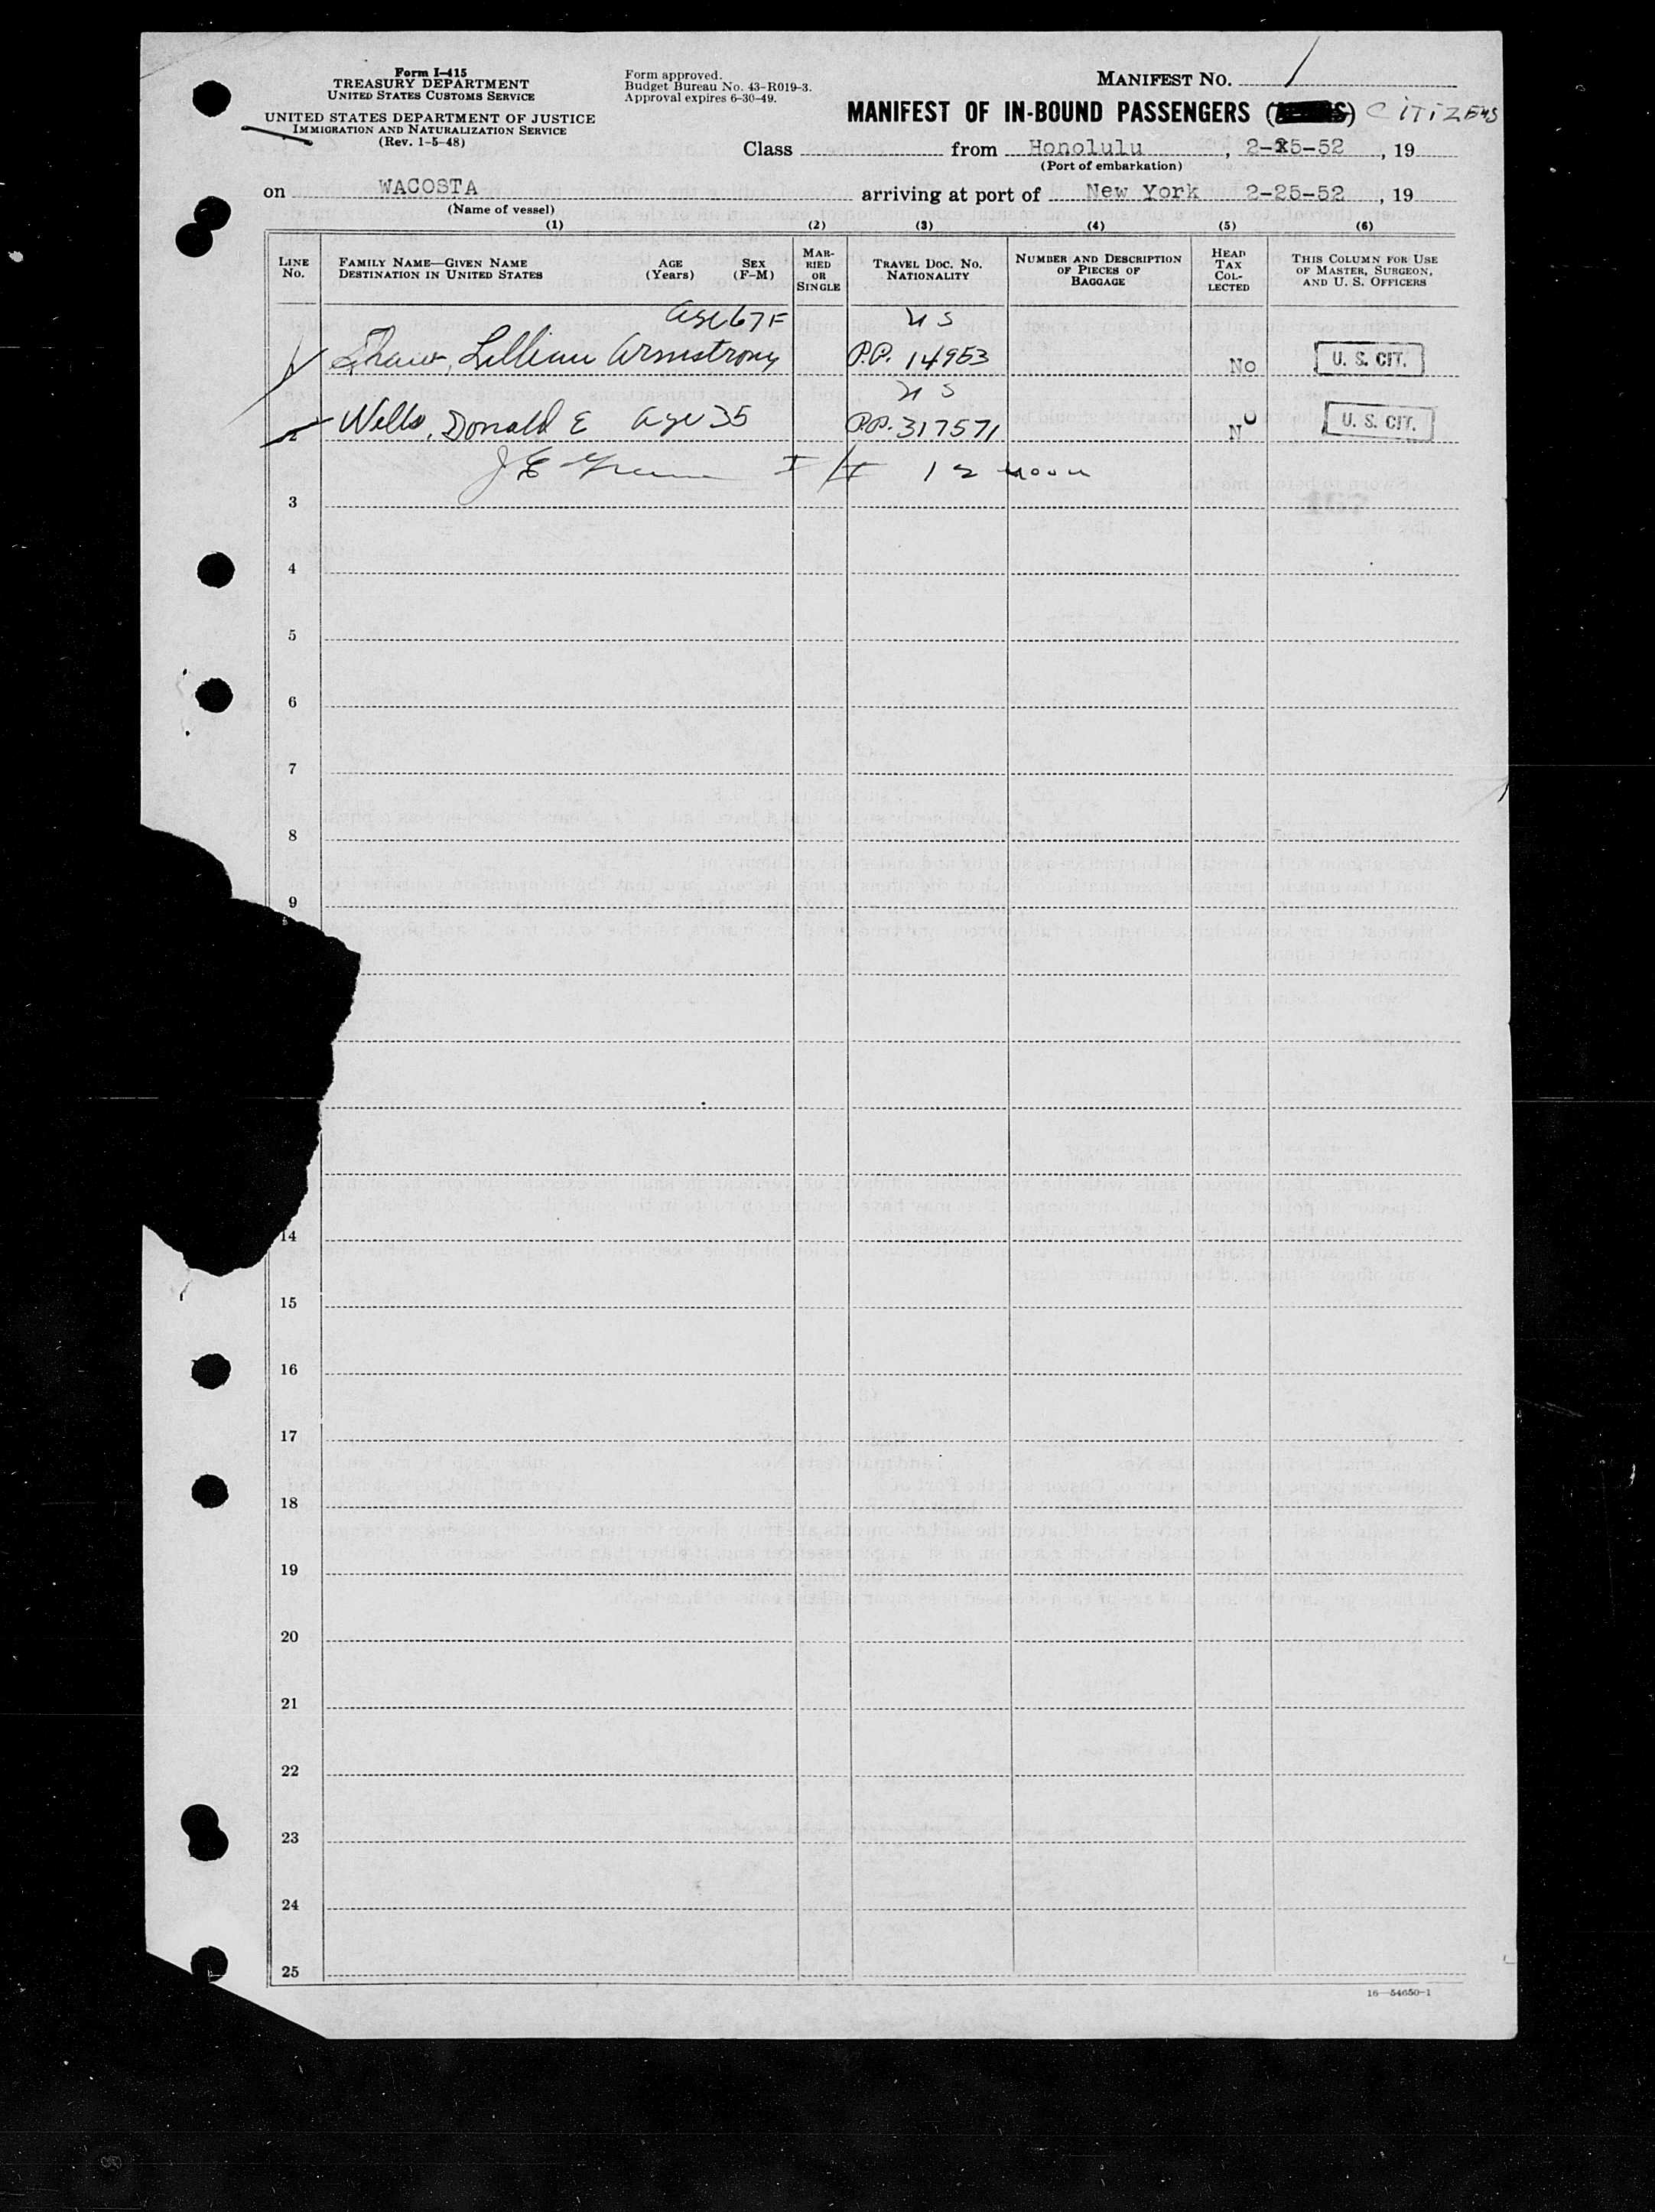 Form I-415
TREASURY DEPARTMENT
UNITED STATES CUSTOMS SERVICE
UNITED STATES DEPARTMENT OF JUSTICE
IMMIGRATION AND NATURALIZATION SERVICE
(Rev. 1-5-48)
Form approved.
Budget Bureau No. 43-R019-3.
Approval expires 6-30-49.
MANIFEST NO. 1
MANIFEST OF IN-BOUND PASSENGERS () CITIZENS
Class from Honolulu, 2-25-52, 19
(Port of embarkation)
on WACOSTA arriving at port of New York 2-25-52, 19
(Name of vessel)
(1) (2) (3) (4) (5) (6)
LINE No. FAMILY NAME—GIVEN NAME DESTINATION IN UNITED STATES AGE (Years) SEX (F-M) MARRIED OR SINGLE TRAVEL DOC. NO. NATIONALITY NUMBER AND DESCRIPTION OF PIECES OF BAGGAGE HEAD TAX COLLECTED THIS COLUMN FOR USE OF MASTER, SURGEON, AND U. S. OFFICERS
Age 67 F US
Shaw, Lillian Armstrong P.P. 14953 No U. S. CIT.
US
2 Wells, Donald E Age 35 P.P. 317571 No U. S. CIT.
J E I/I 12 noon
3
4
5
6
7
8
9
14
15
16
17
18
19
20
21
22
23
24
25
16—54650-1